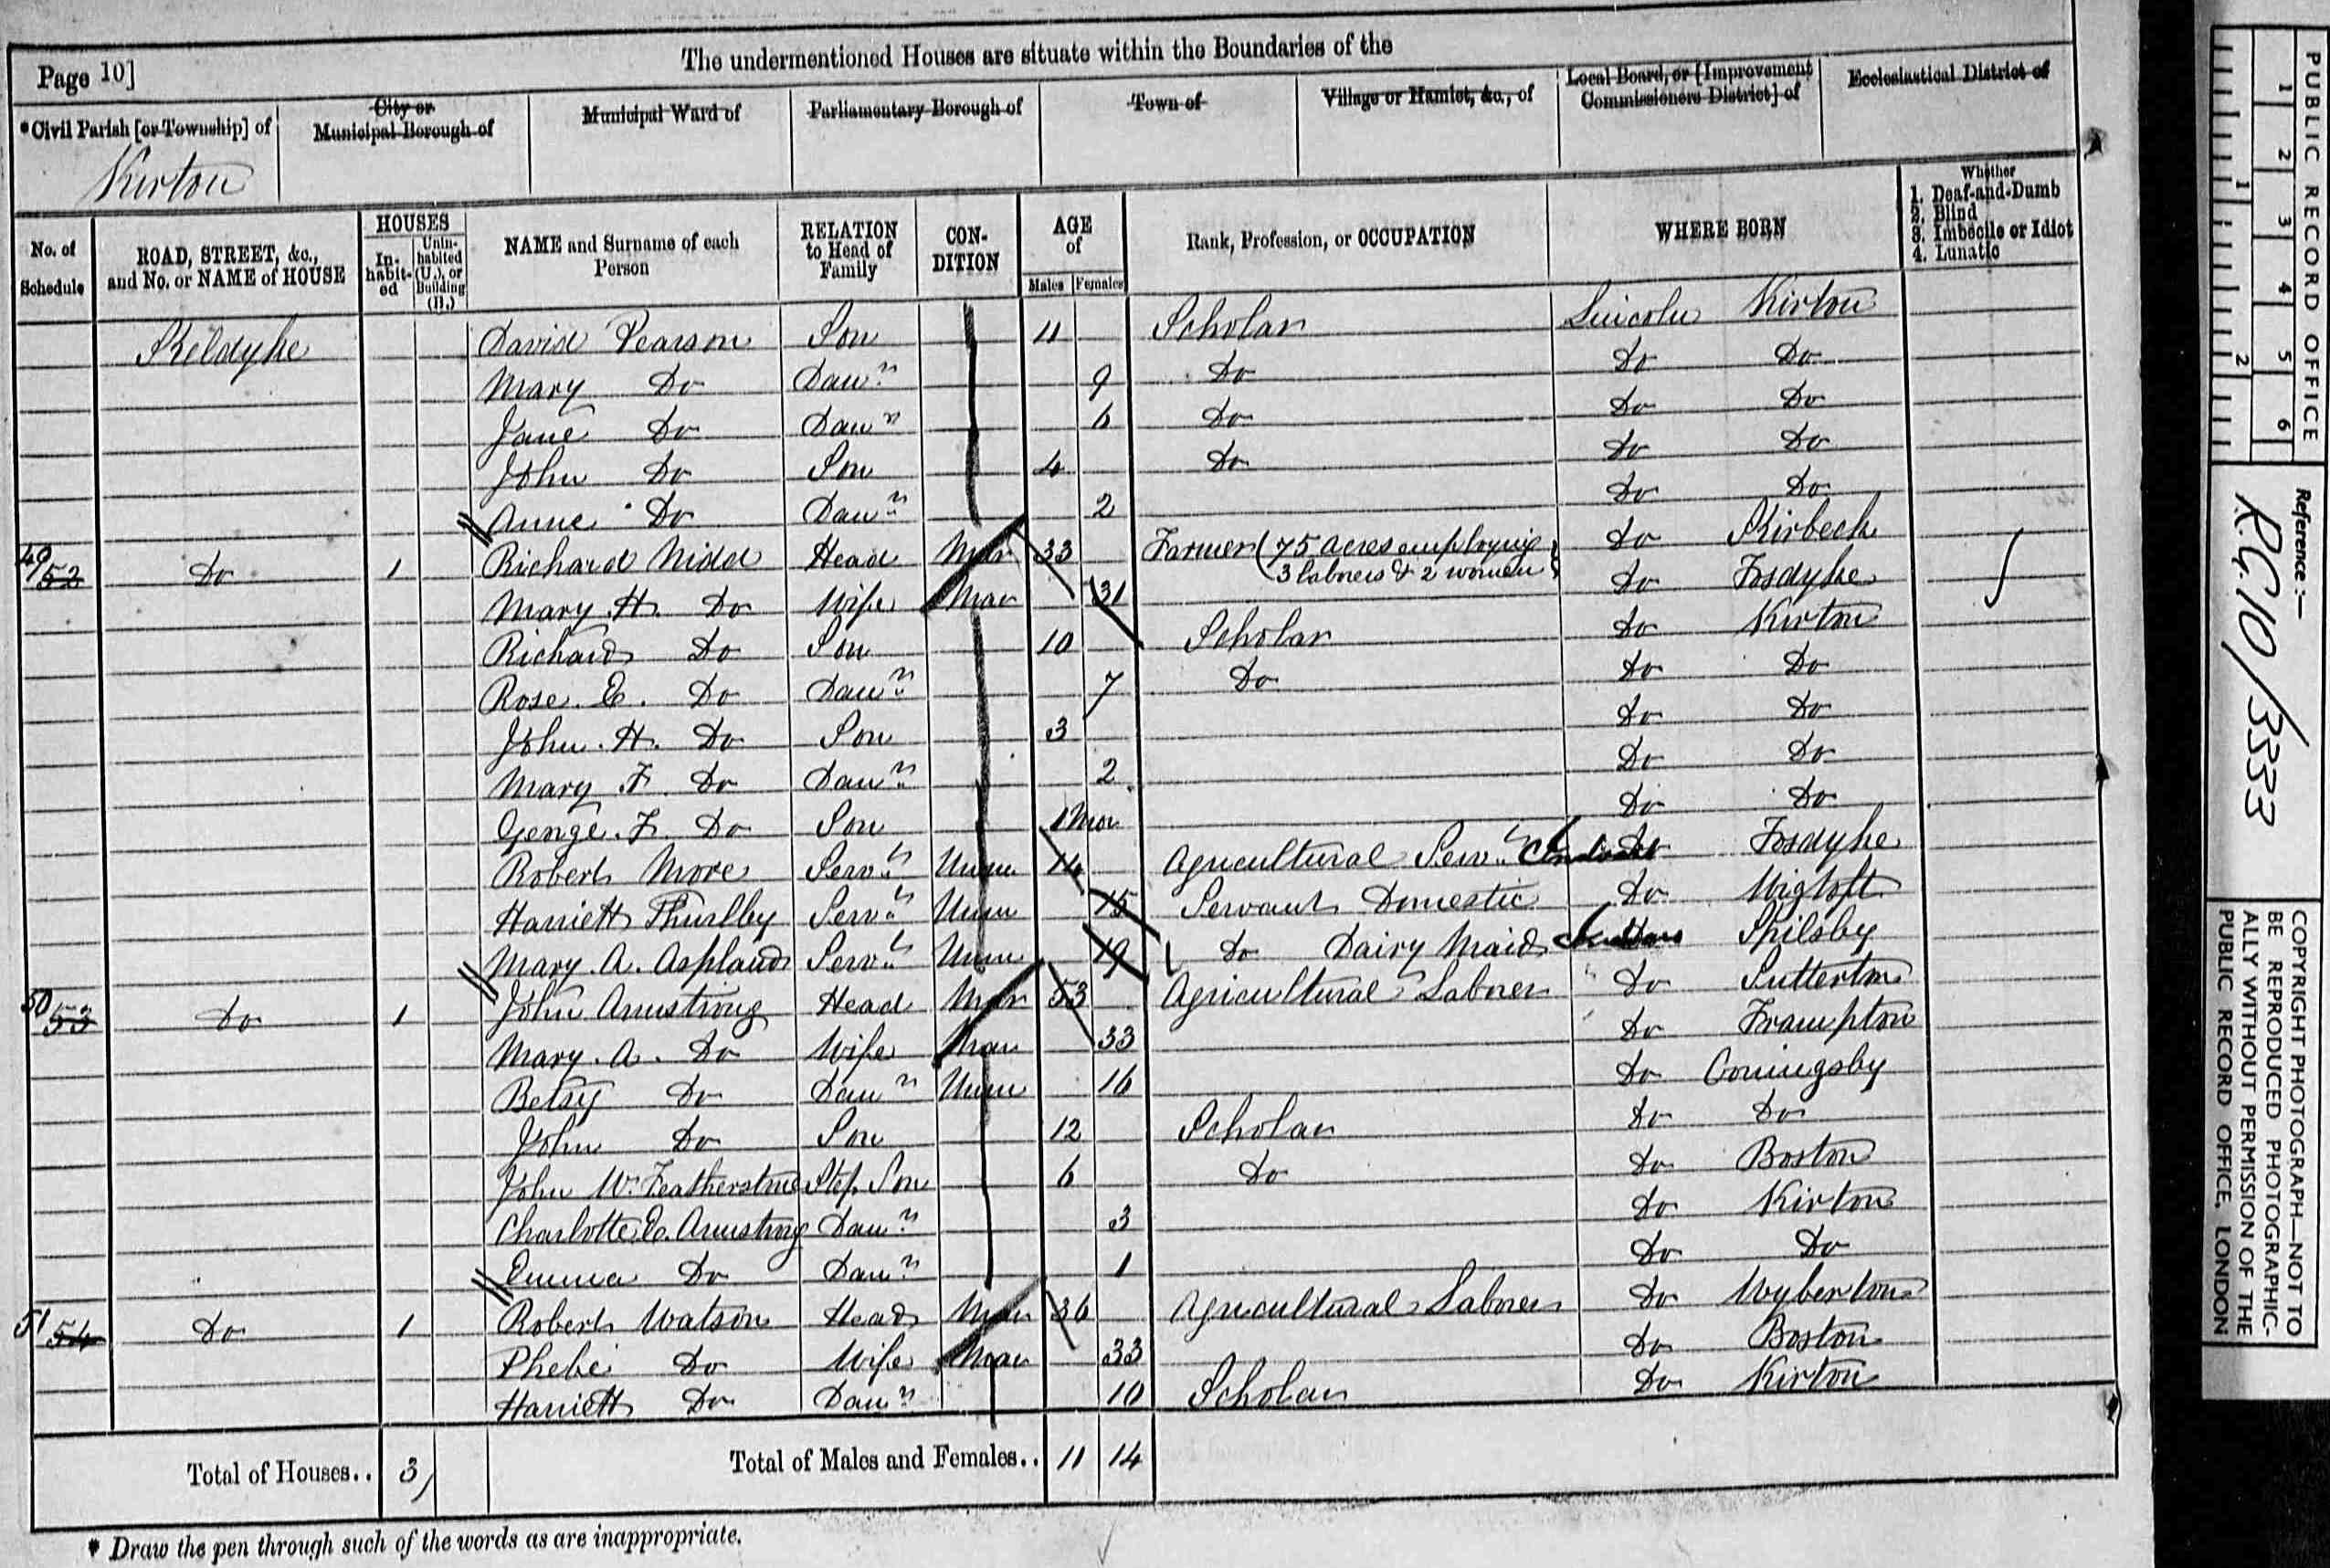 The undermentioned Houses are situate within the Boundaries of the
Page 10]
*Civil Parish [or Township] of
City or Municipal Borough of
Municipal Ward of
Parliamentary Borough of
Town of
Village or Hamlet, &c., of
Local Board, or [Improvement Commissioners District] of
Ecclesiastical District of
Kirton
No. of Schedule
ROAD, STREET, &c., and No. or NAME of HOUSE
HOUSES
In-habit-ed
Unin-habited (U.), or Building (B.)
NAME and Surname of each Person
RELATION to Head of Family
CON-DITION
AGE of
Males Females
Rank, Profession, or OCCUPATION
WHERE BORN
Whether
1. Deaf-and-Dumb
2. Blind
3. Imbecile or Idiot
4. Lunatic
Skeldyke David Pearson Son 11 Scholar Lincoln Kirton
Mary Do Daur 9 Do Do Do
Jane Do Daur 6 Do Do Do
John Do Son 4 Do Do Do
Anne Do Daur 2 Do Do
49 52 Do 1 Richard Nidd Head Mar 33 Farmer (75 acres employing 3 labores & 2 women) Do Skirbeck
Mary H. Do Wife Mar 31 Do Fosdyke
Richard Do Son 10 Scholar Do Kirton
Rose E. Do Daur 7 Do Do Do
John H. Do Son 3 Do Do
Mary F. Do Daur 2 Do Do
George F. Do Son 1 Mo Do Do
Robert More Servt Unm 14 Agricultural Servt Do Fosdyke
Harriett Thurlby Servt Unm 15 Servant Domestic Do Wigtoft
Mary A. Aspland Servt Unm 19 Do Dairy Maid Spilsby
50 53 Do 1 John Armstrong Head Mar 53 Agricultural Laborer Do Sutterton
Mary A. Do Wife Mar 33 Do Frampton
Betsy Do Daur Unm 16 Do Coningsby
John Do Son 12 Scholar Do Do
John W. Featherstone Step Son 6 Do Do Boston
Charlotte E. Armstrong Daur 3 Do Kirton
Emma Do Daur 1 Do Do
51 54 Do 1 Robert Watson Head Mar 36 Agricultural Laborer Do Wyberton
Phebe Do Wife Mar 33 Do Boston
Harriett Do Daur 10 Scholar Do Kirton
Total of Houses.. 3 Total of Males and Females.. 11 14
* Draw the pen through such of the words as are inappropriate.
PUBLIC RECORD OFFICE
1 2 3 4 5 6
1 2
Reference :—
R.G. 10/3333
COPYRIGHT PHOTOGRAPH—NOT TO
BE REPRODUCED PHOTOGRAPHIC-
ALLY WITHOUT PERMISSION OF THE
PUBLIC RECORD OFFICE, LONDON